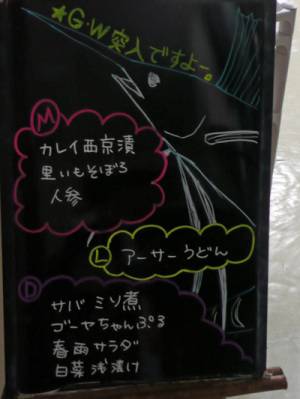 ★G・W突入ですよー。
M
カレイ西京漬
里いもそぼろ
人参
L
アーサーうどん
D
サバミソ煮
ゴーヤちゃんぷる
春雨サラダ
白菜浅漬け